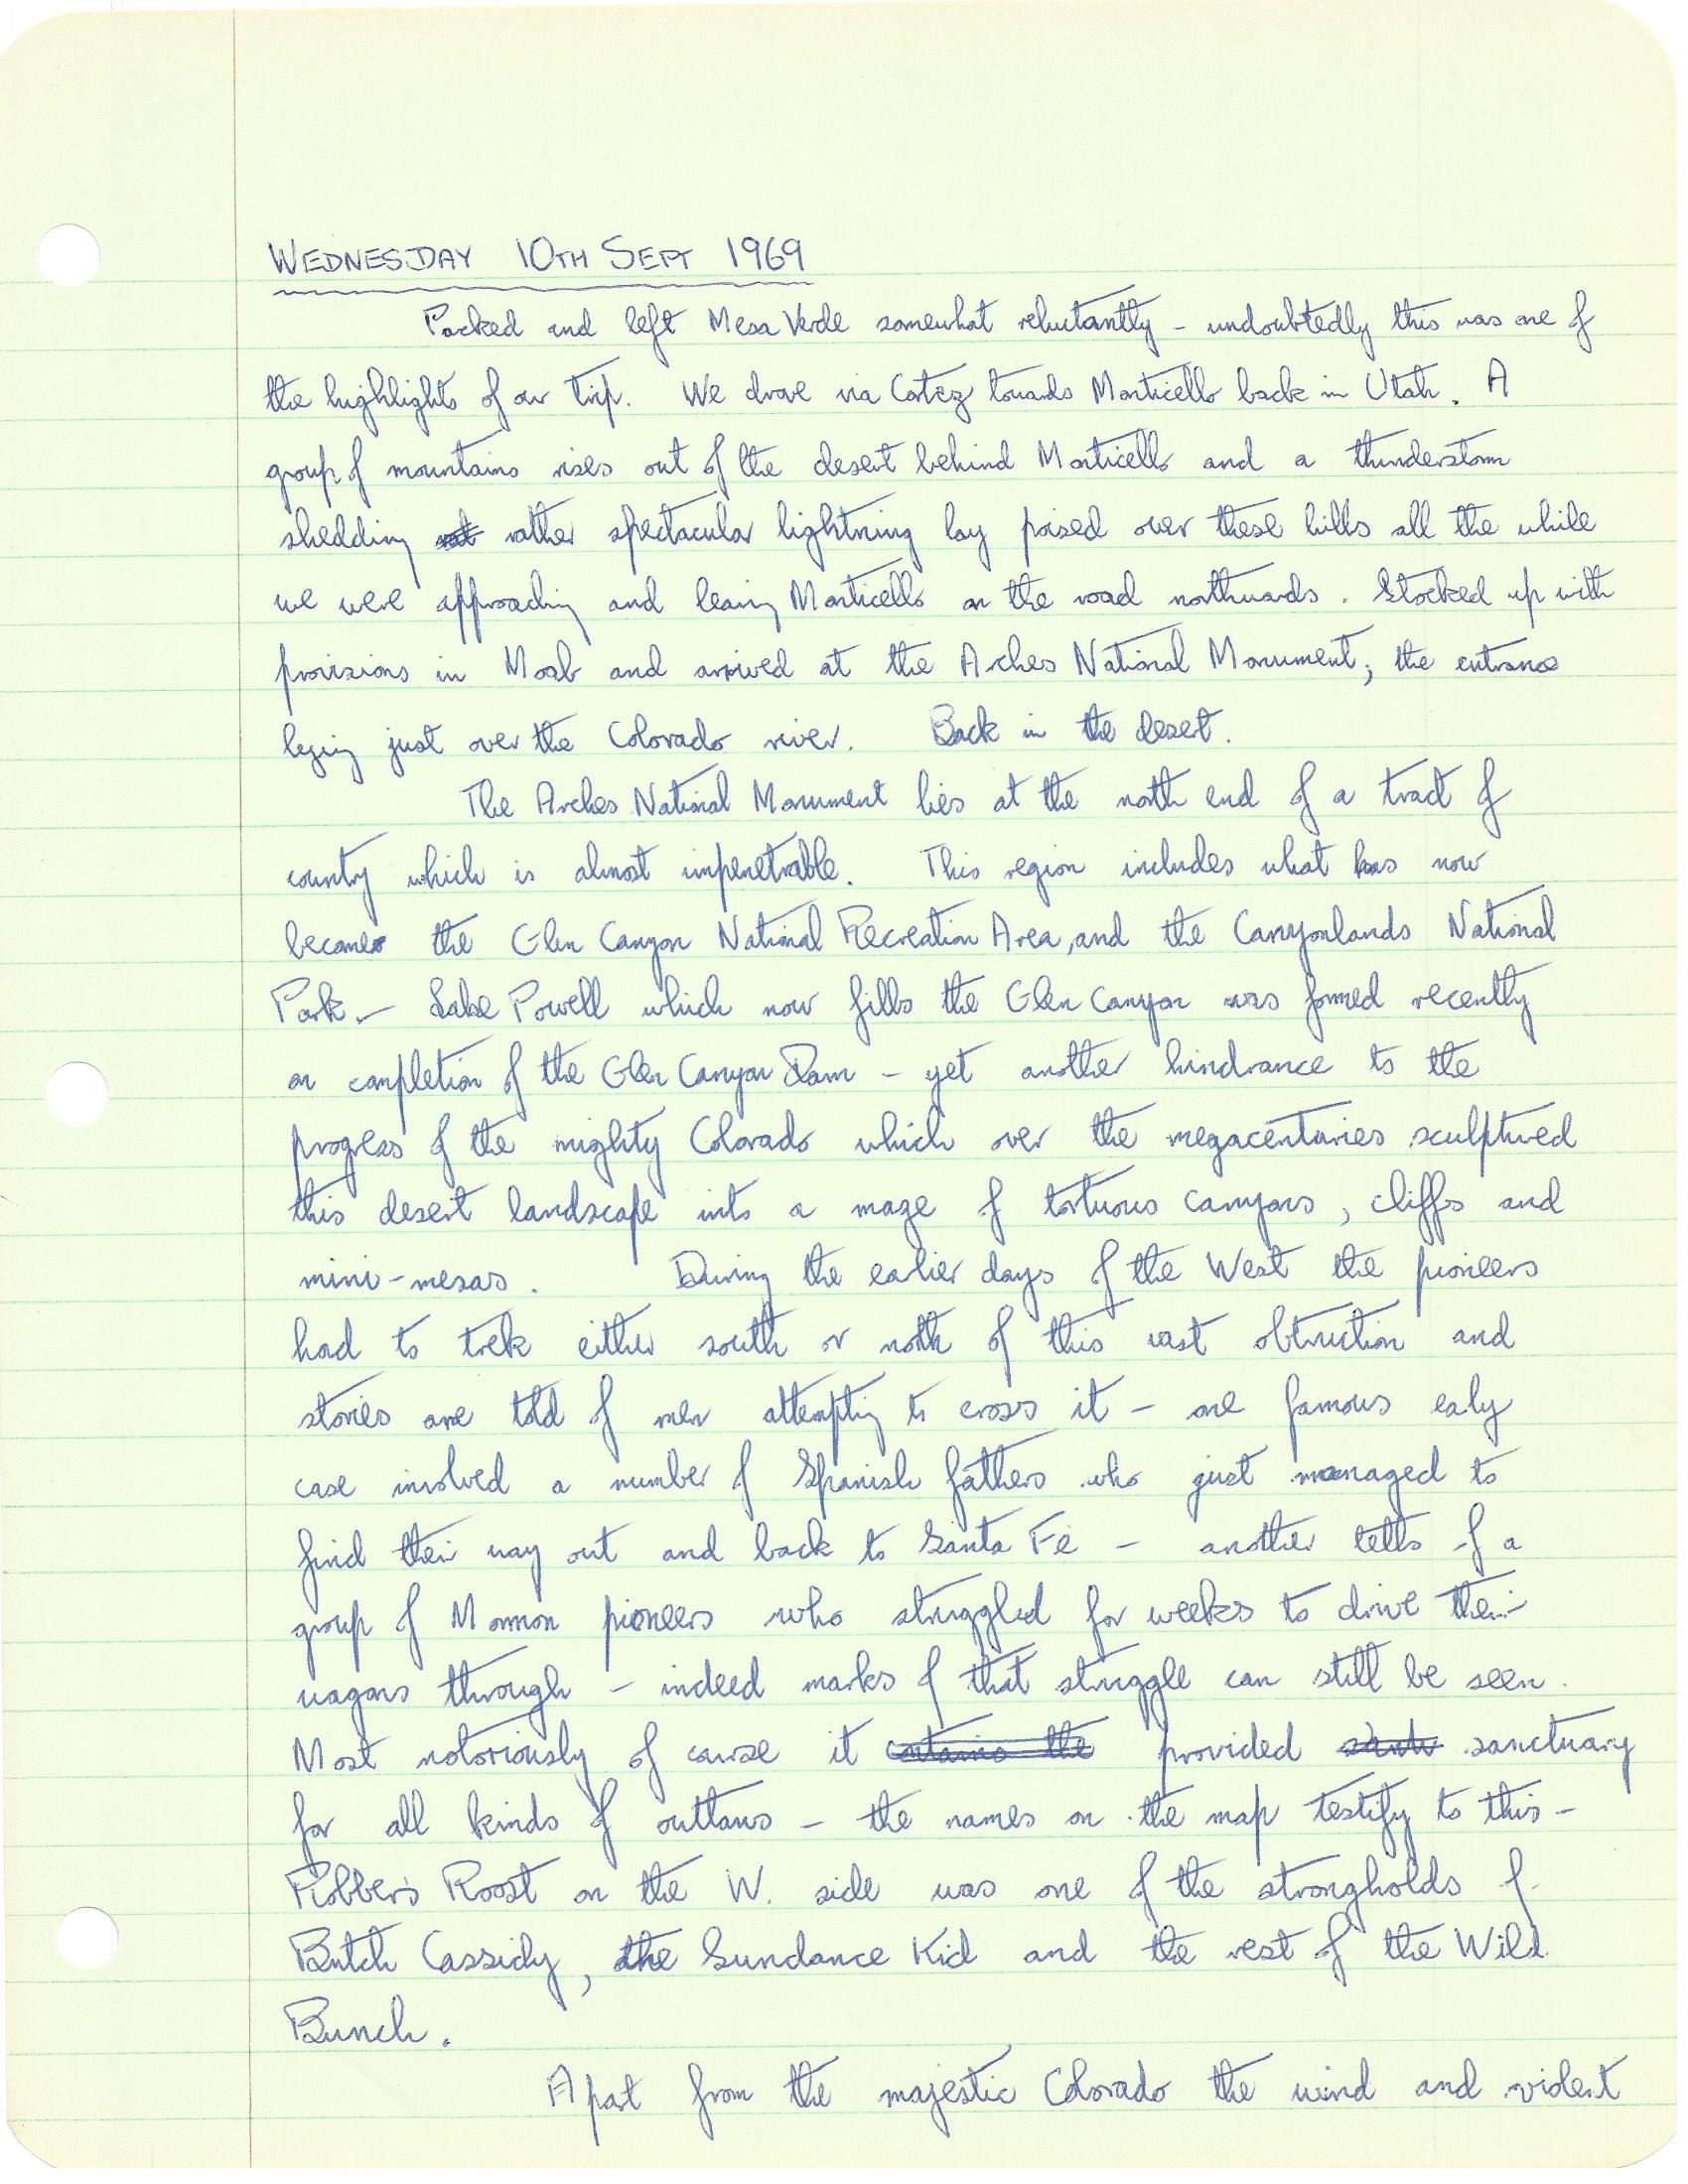 WEDNESDAY 10TH SEPT 1969
Packed and left Mesa Verde somewhat reluctantly - undoubtedly this was one of
the highlights of our trip. We drove via Cortez towards Monticello back in Utah. A
group of mountains rises out of the desert behind Monticello and a thunderstorm
shedding rather spectacular lightning lay poised over these hills all the while
we were approaching and leaving Monticello on the road northwards. Stocked up with
provisions in Moab and arrived at the Arches National Monument, the entrance
lying just over the Colorado river. Back in the desert.
The Arches National Monument lies at the north end of a tract of
country which is almost impenetrable. This region includes what has now
become the Glen Canyon National Recreation Area, and the Canyonlands National
Park. - Lake Powell which now fills the Glen Canyon was formed recently
on completion of the Glen Canyon Dam - yet another hindrance to the
progress of the mighty Colorado which over the megacenturies sculptured
this desert landscape into a maze of tortuous canyons, cliffs and
mini-mesas. During the earlier days of the West the pioneers
had to trek either south or north of this vast obtruction and
stories are told of men attempting to cross it - one famous early
case involved a number of Spanish fathers who just managed to
find their way out and back to Santa Fe - another tells of a
group of Mormon pioneers who struggled for weeks to drive their
wagons through - indeed marks of that struggle can still be seen.
Most notoriously of course it contains the provided sanctuary
for all kinds of outlaws - the names on the map testify to this -
Robber's Roost on the W. side was one of the strongholds of
Butch Cassidy, the Sundance Kid and the rest of the Wild
Bunch.
Apart from the majestic Colorado the wind and violent